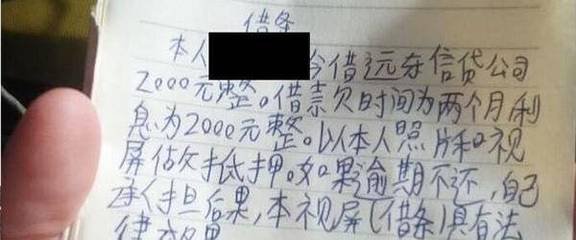 借条
本人 今借远东信贷公司
2000元整。借款欠时间为两个月利
息为2000元整。以本人照片和视
屏做欠抵押。如果逾期不还,自己
承担后果,本视屏(借条)具有法
律效果